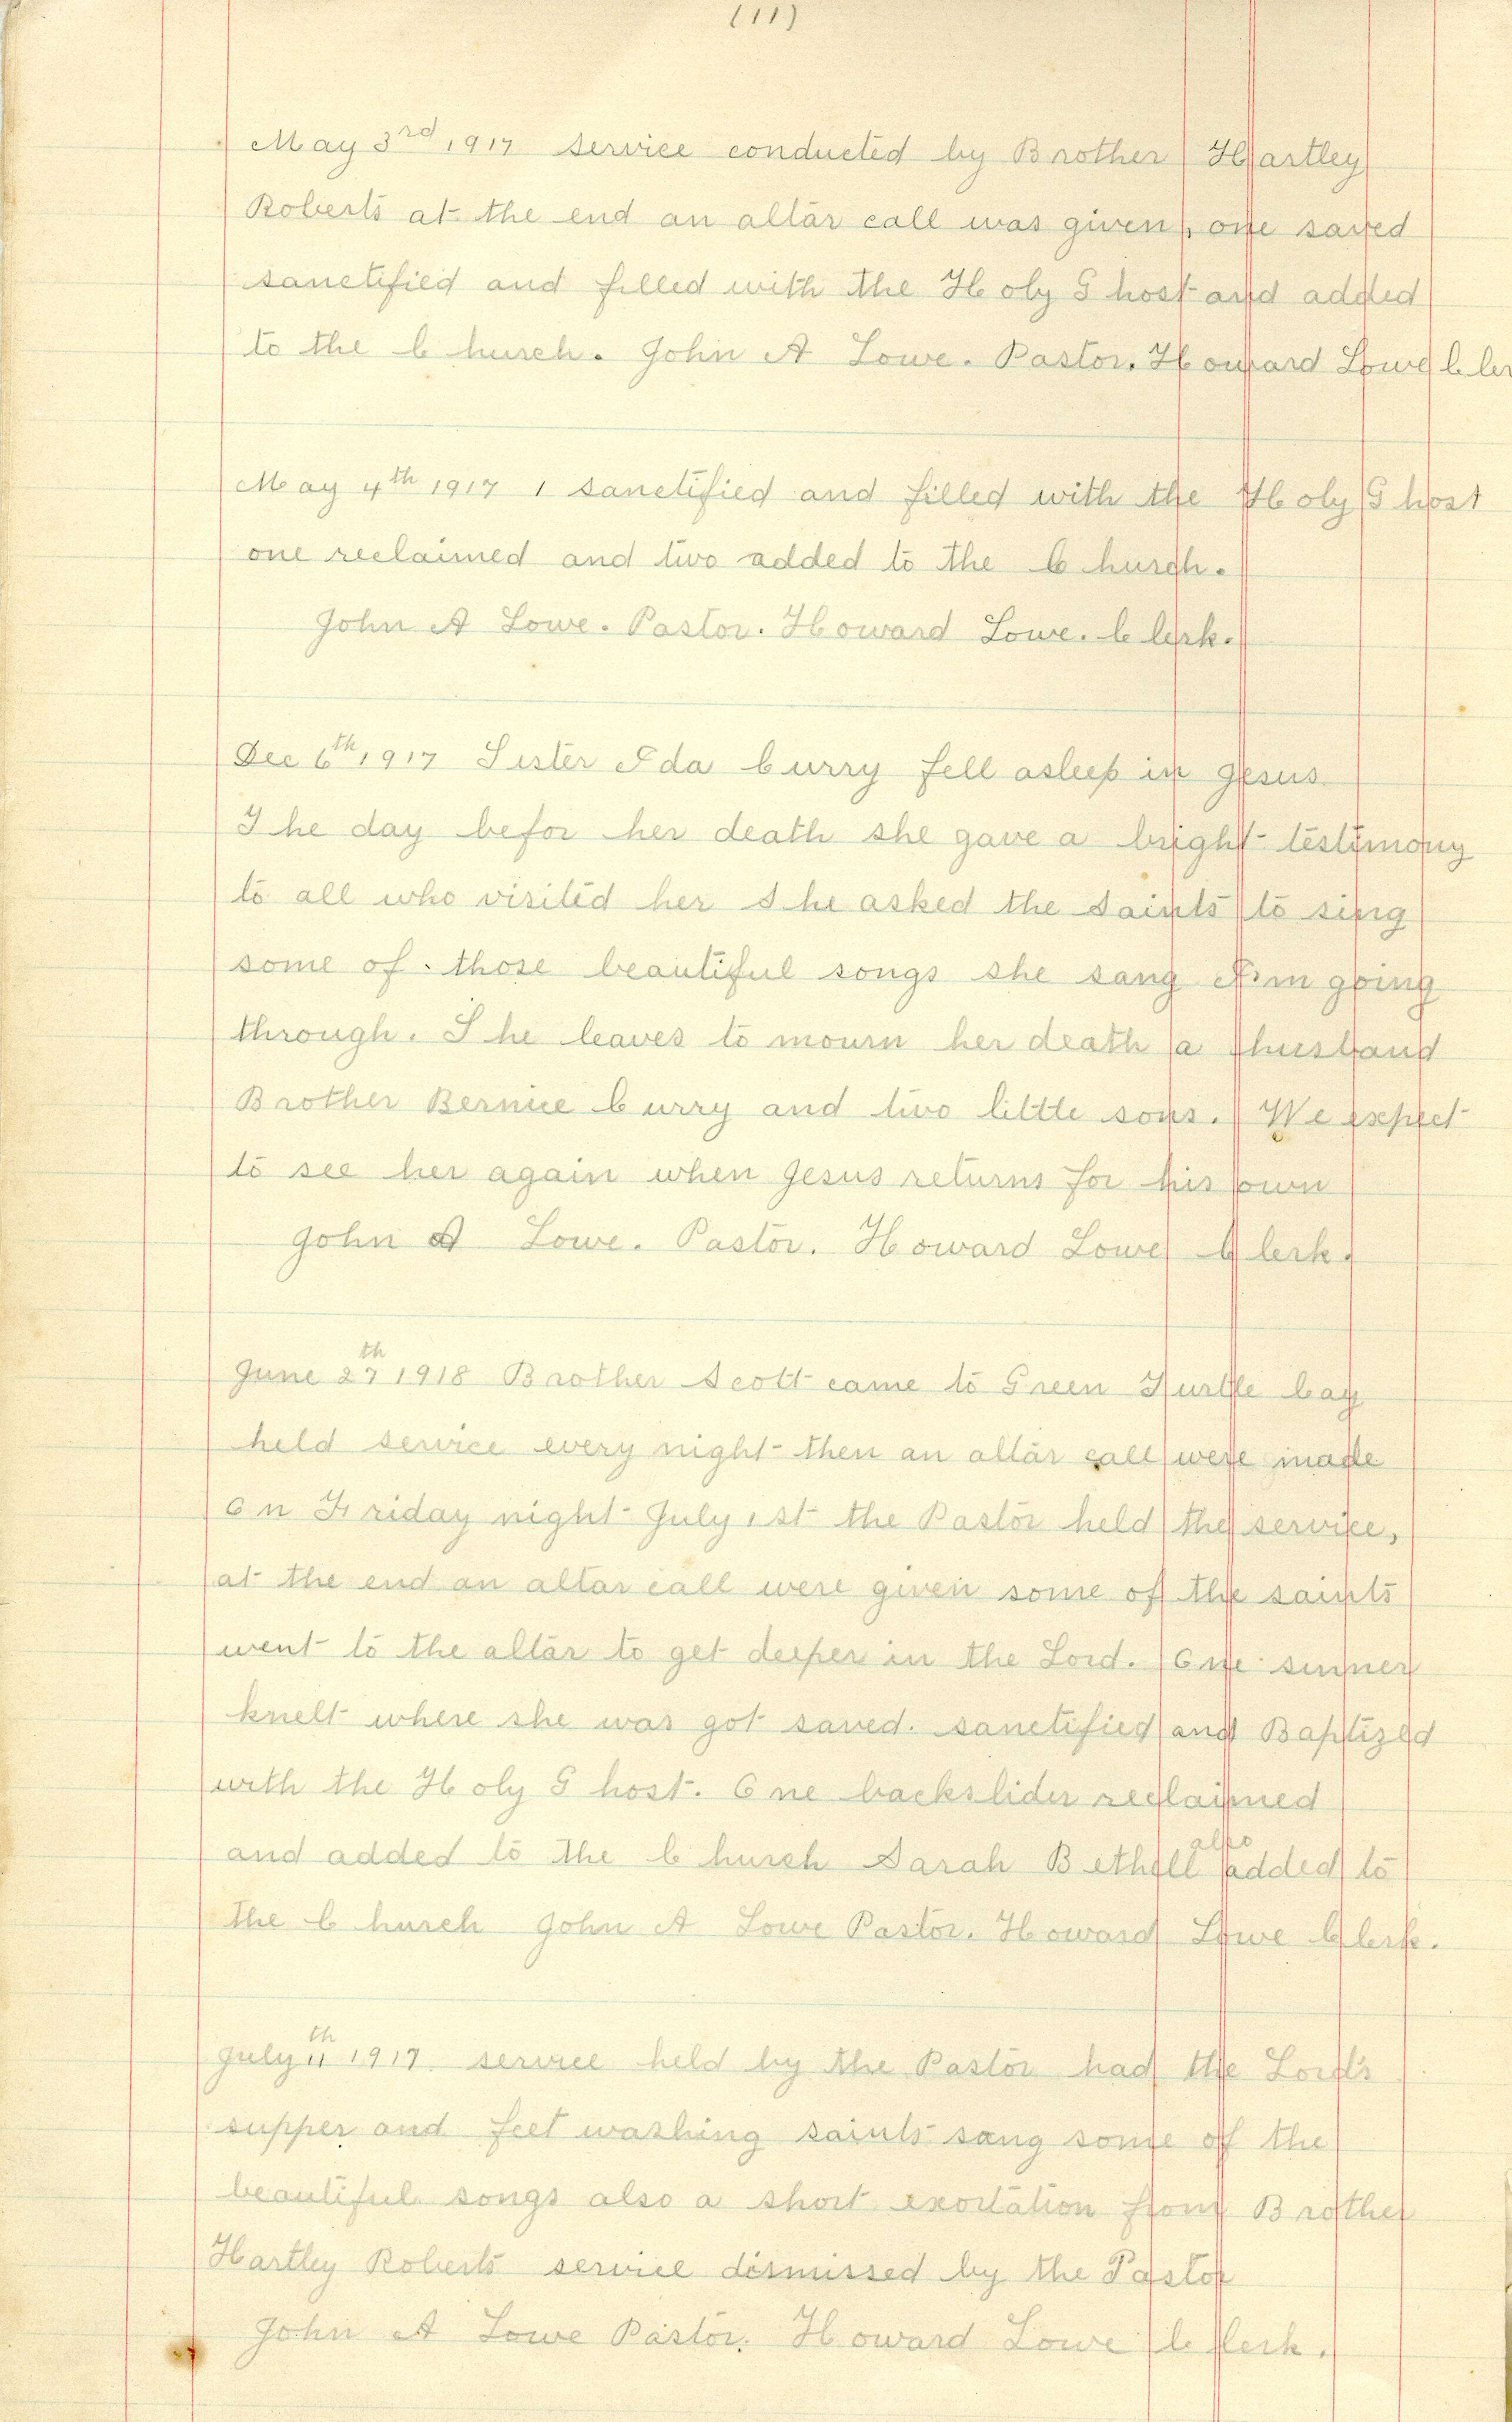 (11)
May 3rd 1917 service conducted by Brother Hartley
Roberts at the end an altar call was given, one saved
sanctified and filled with the Holy Ghost and added
to the Church. John A Lowe. Pastor. Howard Lowe Cler
May 4th 1917 1 sanctified and filled with the Holy Ghost
one reclaimed and two added to the Church.
John A Lowe. Pastor. Howard Lowe. Clerk.
Dec 6th 1917 Sister Ida Curry fell asleep in Jesus
The day befor her death she gave a bright testimony
to all who visited her She asked the Saints to sing
some of those beautiful songs she sang I'm going
through. She leaves to mourn her death a husband
Brother Bernice Curry and two little sons. We expect
to see her again when Jesus returns for his own
John A Lowe. Pastor. Howard Lowe Clerk.
June 27th 1918 Brother Scott came to Green Turtle Cay
held service every night then an altar call were made
On Friday night July 1st the Pastor held the service,
at the end an altar call were given some of the saints
went to the altar to get deeper in the Lord. One sinner
knelt where she was got saved. sanctified and Baptized
with the Holy Ghost. One backslider reclaimed
and added to the Church Sarah Bethell also added to
the Church John A Lowe Pastor. Howard Lowe Clerk.
July 11th 1917. service held by the Pastor had the Lord's
supper and feet washing saints sang some of the
beautiful songs also a short exortation from Brother
Hartley Roberts service dismissed by the Pastor
John A Lowe Pastor. Howard Lowe Clerk.